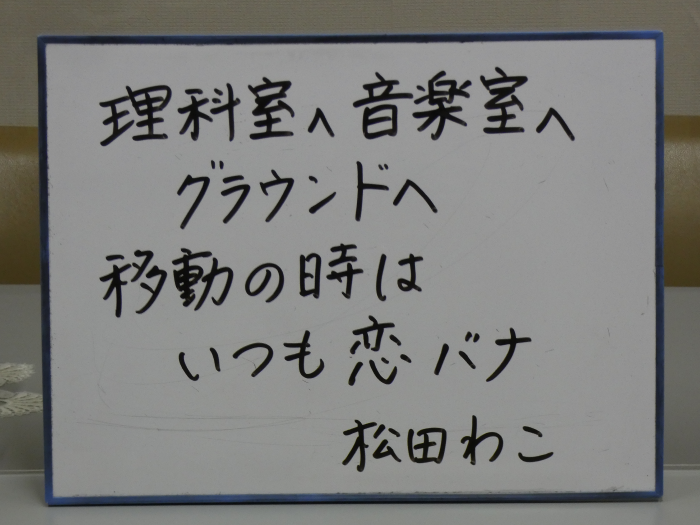 理科室へ 音楽室へ
グラウンドへ
移動の時は
いつも恋バナ
松田わこ